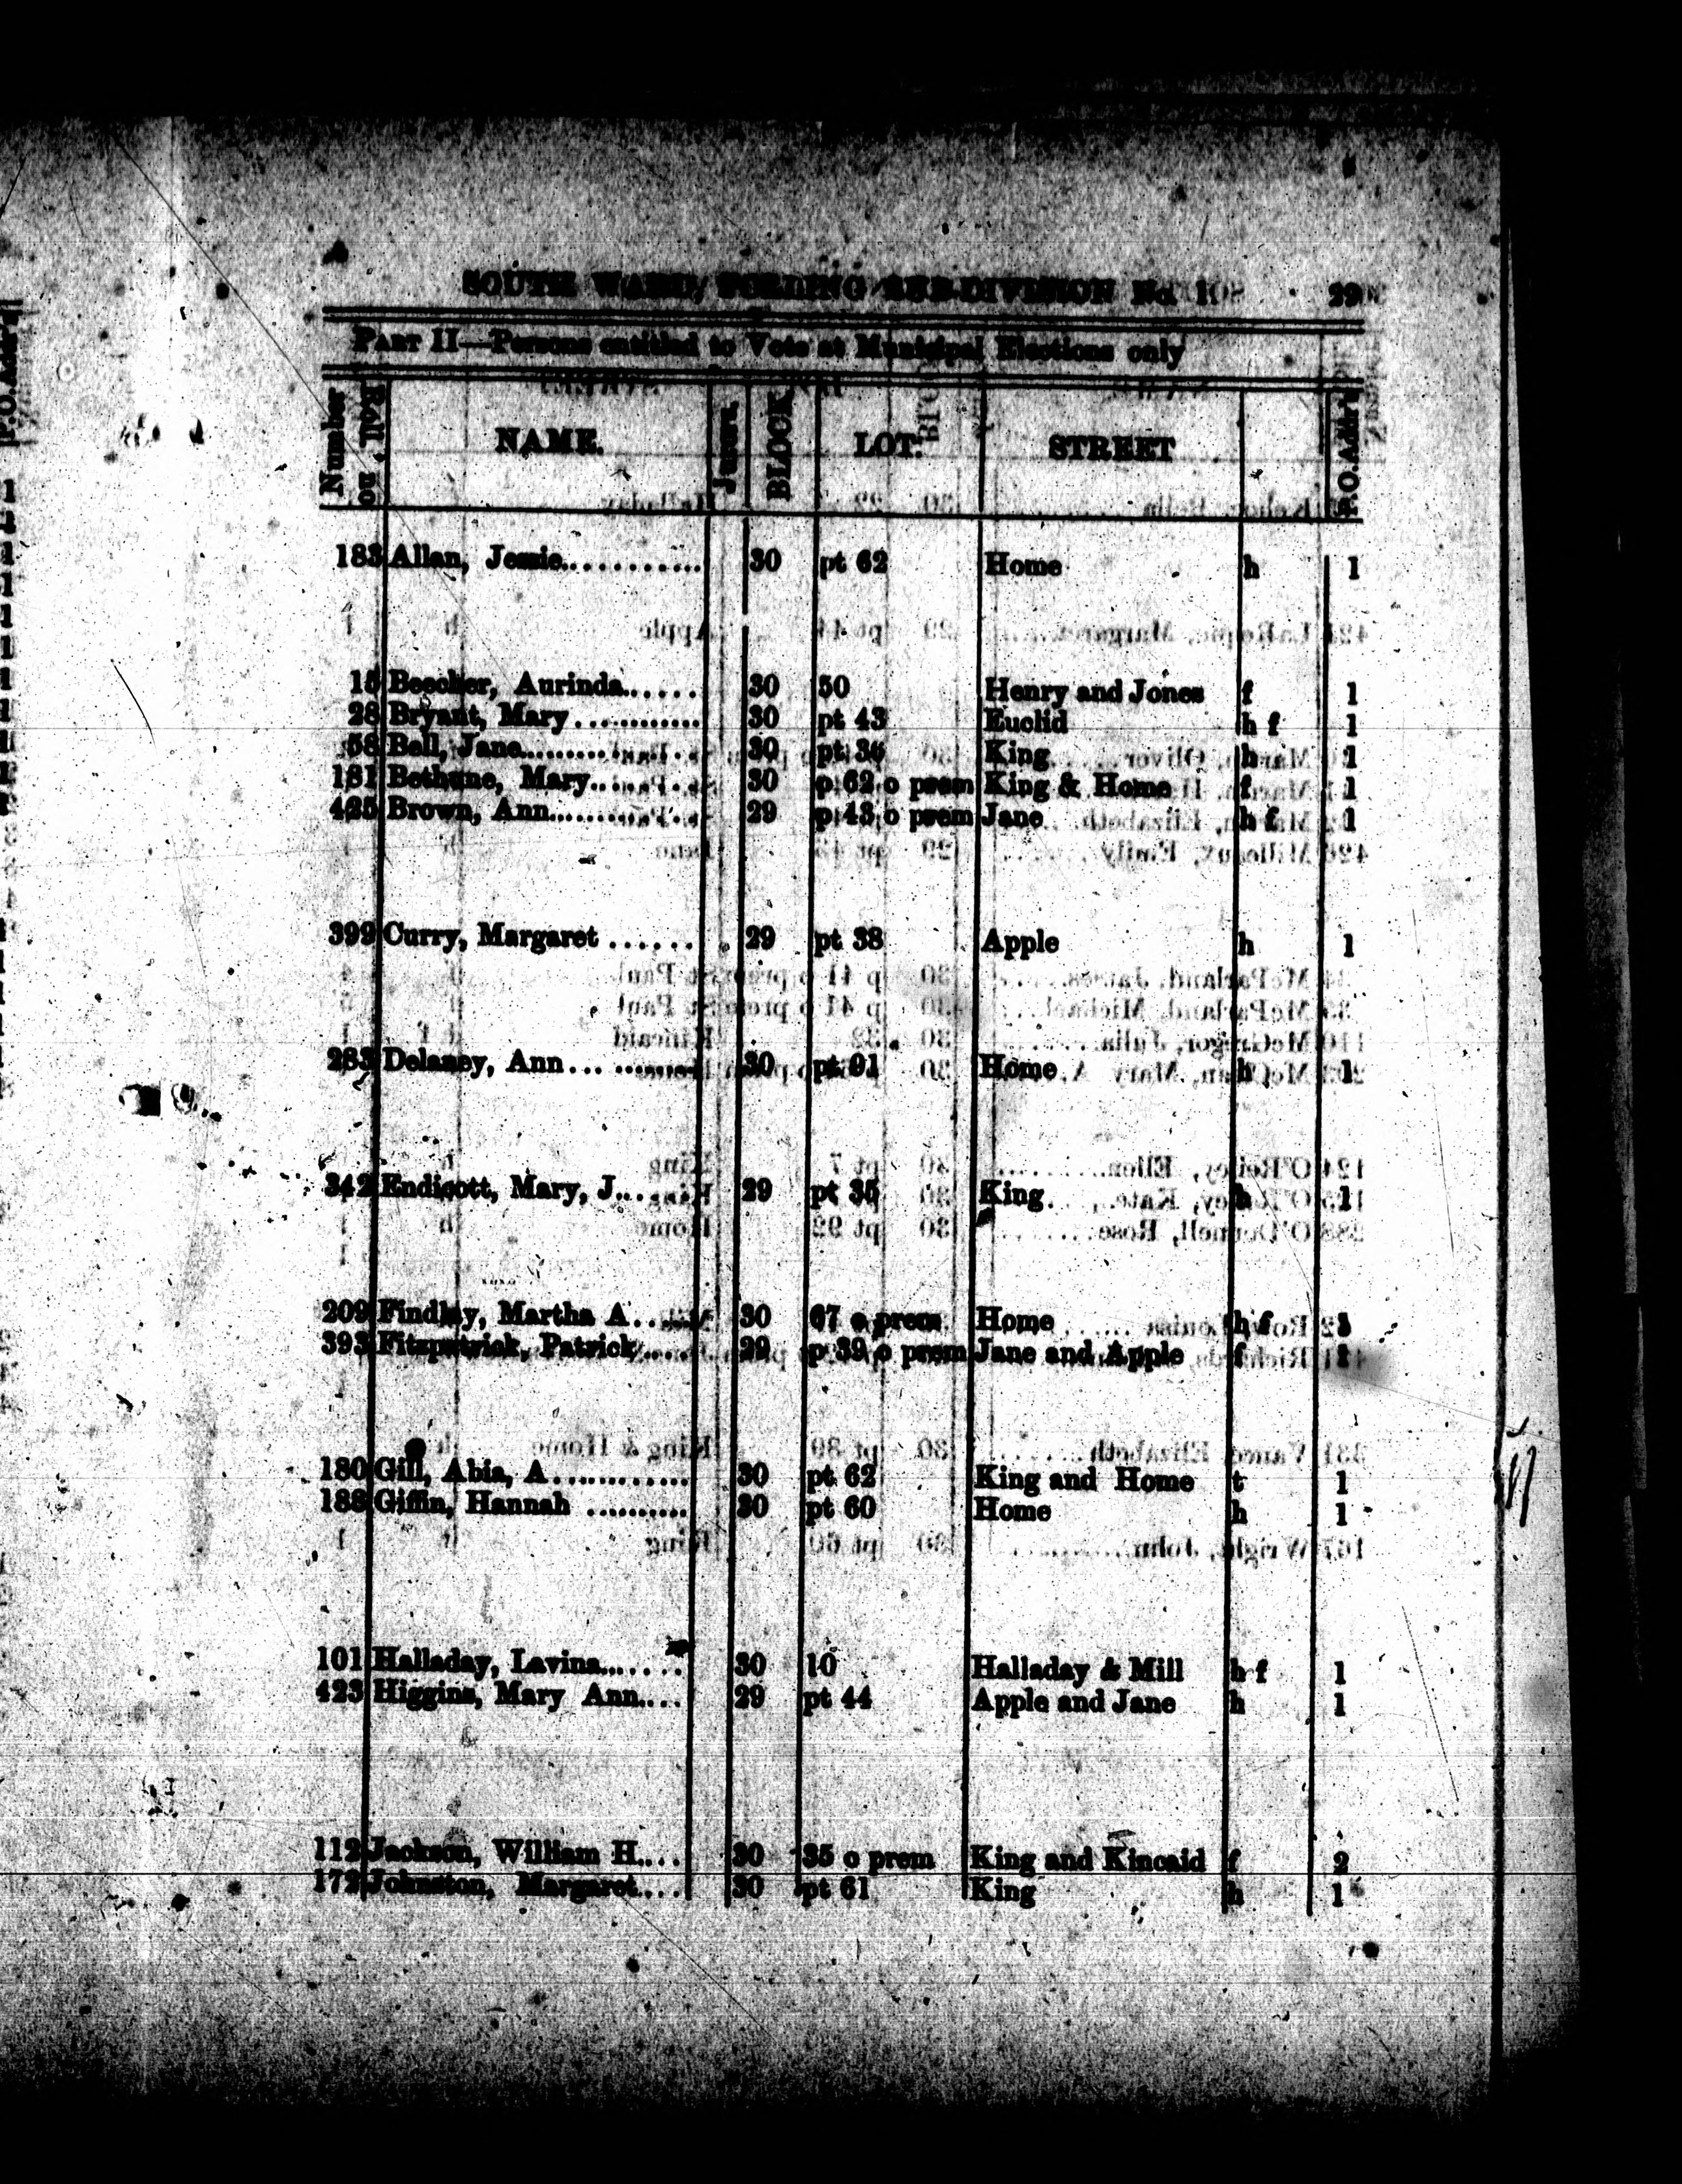 SOUTH WARD, POLLING SUB-DIVISION No. 1 29
PART II—Persons entitled to Vote at Municipal Elections only
Number on Roll. NAME. Jurors. BLOCK. LOT. STREET P.O. Addr's
183 Allan, Jessie........... 30 pt 62 Home h 1
15 Beecher, Aurinda...... 30 50 Henry and Jones f 1
28 Bryant, Mary............ 30 pt 43 Euclid h f 1
58 Bell, Jane............... 30 pt 35 King h 1
181 Bethune, Mary......... 30 p 62 o prem King & Home f 1
425 Brown, Ann............. 29 p 43 o prem Jane h f 1
399 Curry, Margaret ...... 29 pt 38 Apple h 1
283 Delaney, Ann............ 30 pt 91 Home h 1
342 Endicott, Mary, J...... 29 pt 35 King h 1
209 Findlay, Martha A...... 30 67 o prem Home h f 1
393 Fitzpatrick, Patrick..... 29 p 39 o prem Jane and Apple f 1
180 Gill, Abia, A............ 30 pt 62 King and Home t 1
188 Giffin, Hannah .......... 30 pt 60 Home h 1
101 Halladay, Lavina....... 30 10 Halladay & Mill h f 1
423 Higgins, Mary Ann.... 29 pt 44 Apple and Jane h 1
112 Jackson, William H.... 30 35 o prem King and Kincaid f 2
172 Johnston, Margaret.... 30 pt 61 King h 1